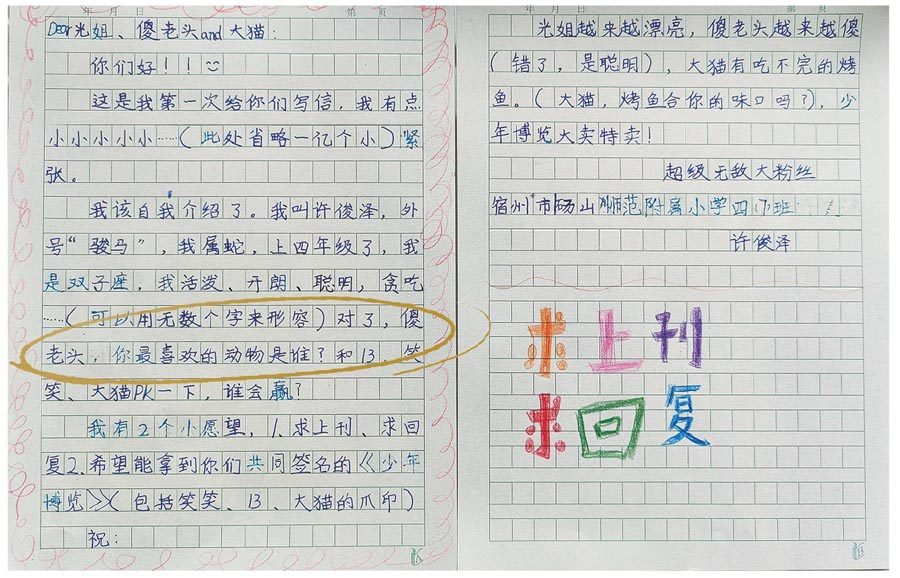 年 月 日 第 页
Dear光姐、傻老头and大猫：
你们好！！
这是我第一次给你们写信，我有点
小小小小小……（此处省略一亿个小）紧
张。
我该自我介绍了。我叫许俊泽，外
号“骏马”，我属蛇，上四年级了，我
是双子座，我活泼、开朗、聪明，贪吃
……（可以用无数个字来形容）对了，傻
老头，你最喜欢的动物是谁？和13、笑
笑、大猫PK一下，谁会赢？
我有2个小愿望，1、求上刊、求回
复2、希望能拿到你们共同签名的《少年
博览》（包括笑笑、13、大猫的爪印）
祝：
年 月 日 第 页
光姐越来越漂亮，傻老头越来越傻
（错了，是聪明），大猫有吃不完的烤
鱼。（大猫，烤鱼合你的味口吗？），少
年博览大卖特卖！
超级无敌大粉丝
宿州市砀山师范附属小学四 班
许俊泽
求上刊
求回复